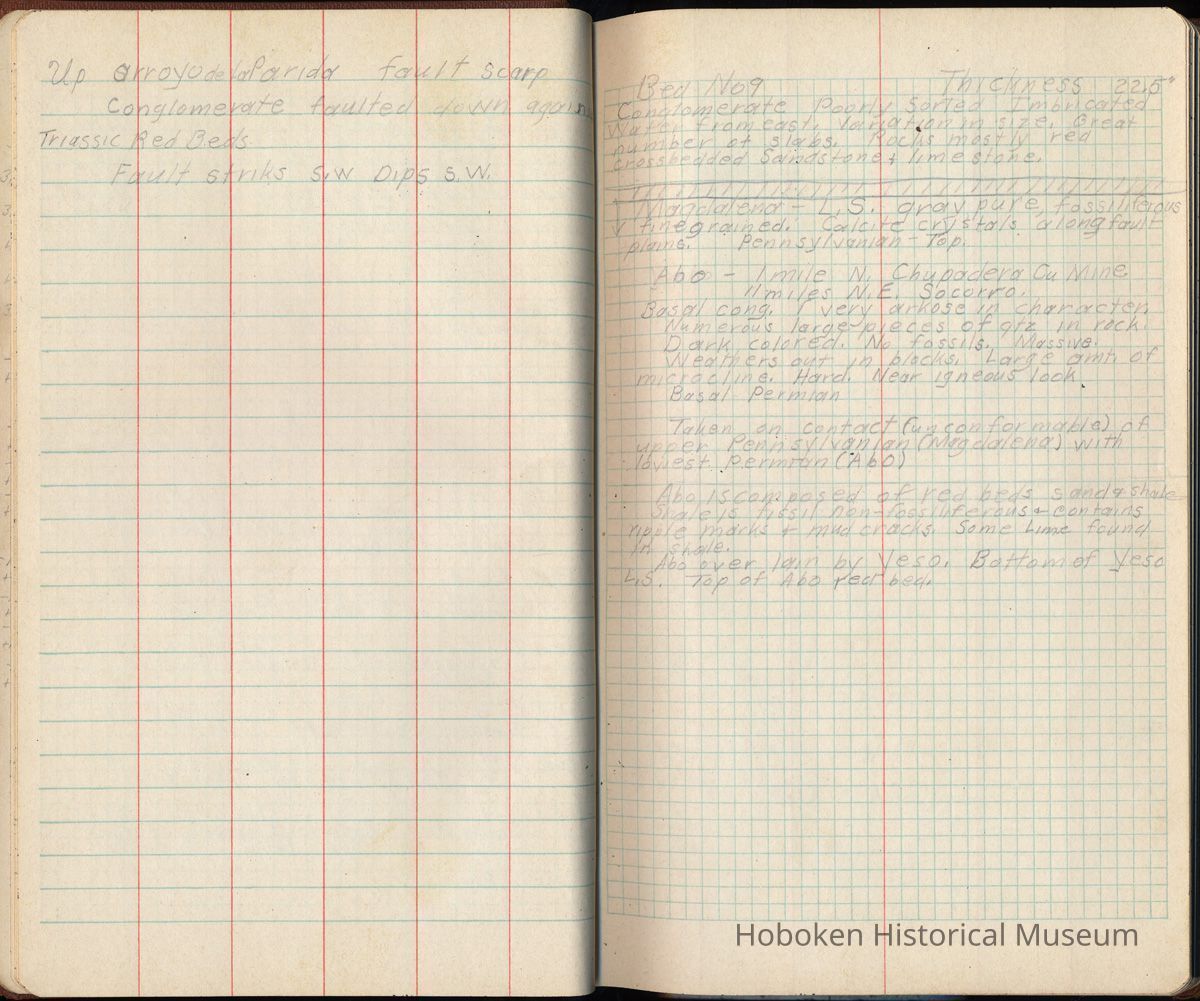 Up arroyo de la Parida fault scarp
Conglomerate faulted down again
Triassic Red Beds
Fault striks s.w Dips s.w.
Bed No 9 Thickness 22.5"
Conglomerate Poorly Sorted Imbricated
Water from east. Variation in size. Great
number of slabs. Rocks mostly red
crossbedded Sandstone & limestone.
Magdalena - L.S. - gray pure, fossiliferous
fine grained. Calcite crystals along fault
plains. Pennsylvanian - Top.
Abo - 1 mile N. Chupadera Cu Mine
11 miles N.E. Socorro.
Basal cong. very arkose in character
Numerous large pieces of qtz in rock
Dark colored. No fossils. Massive.
Weathers out in blocks. Large amt of
microcline. Hard. Near igneous look
Basal Permian
Taken on contact (unconformable) of
upper Pennsylvanian (Magdalena) with
lowest Permian (Abo)
Abo is composed of red beds sand & shale
Shale is fissil non-fossiliferous & contains
ripple marks & mud cracks. Some Lime found
in shale.
Abo over lain by Yeso. Bottom of Yeso
L.S. Top of Abo red bed.
Hoboken Historical Museum